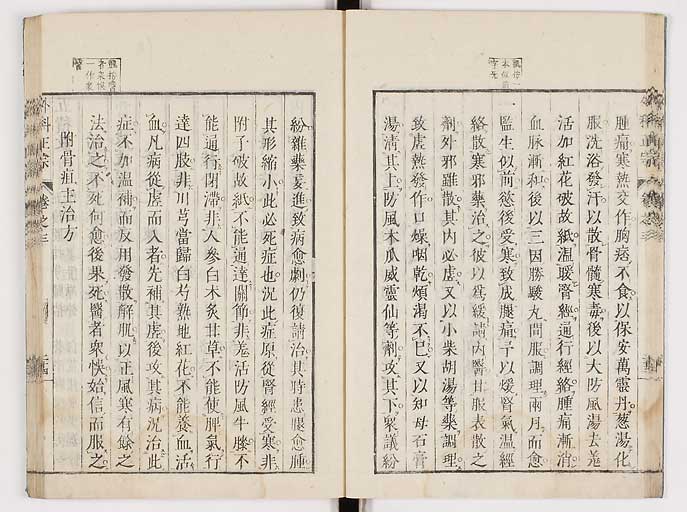 腫痛寒熱交作胸痞不食以保安萬靈丹葱湯化
服洗浴發汗以散骨髓寒毒後以大防風湯去羗
活加紅花破故紙温暖腎經通行經絡腫痛漸消
血脉漸和後以三因勝駿丸間服調理兩月而愈
一監生似前慾後受寒致成腿痛予以暖腎氣温經
絡散寒邪藥治之彼以爲緩請内醫甘服表散之
劑外邪雖散其内必虗又以小柴胡湯等藥調理
致虗熱發作口燥咽乾煩渴不巳又以知母石膏
湯淸其上防風木瓜威靈仙等劑攻其下衆議紛
紛雜藥妄進致病愈劇仍復請治其時患腿愈腫
其形縮小此必死症也況此症原從腎經受寒非
附子破故紙不能通達關節非羗活防風牛膝不
能通行閉滯非人參白朮炙甘草不能使脾氣行
達四肢非川芎當歸白芍熟地紅花不能養血活
血凡病從虗而入者先補其虗後攻其病況治此
症不加温補而反用發散解肌以正風寒有餘之
法治之不死何愈後果死醫者衆悞始信而服之
附骨疽主治方
外科正宗
卷之三